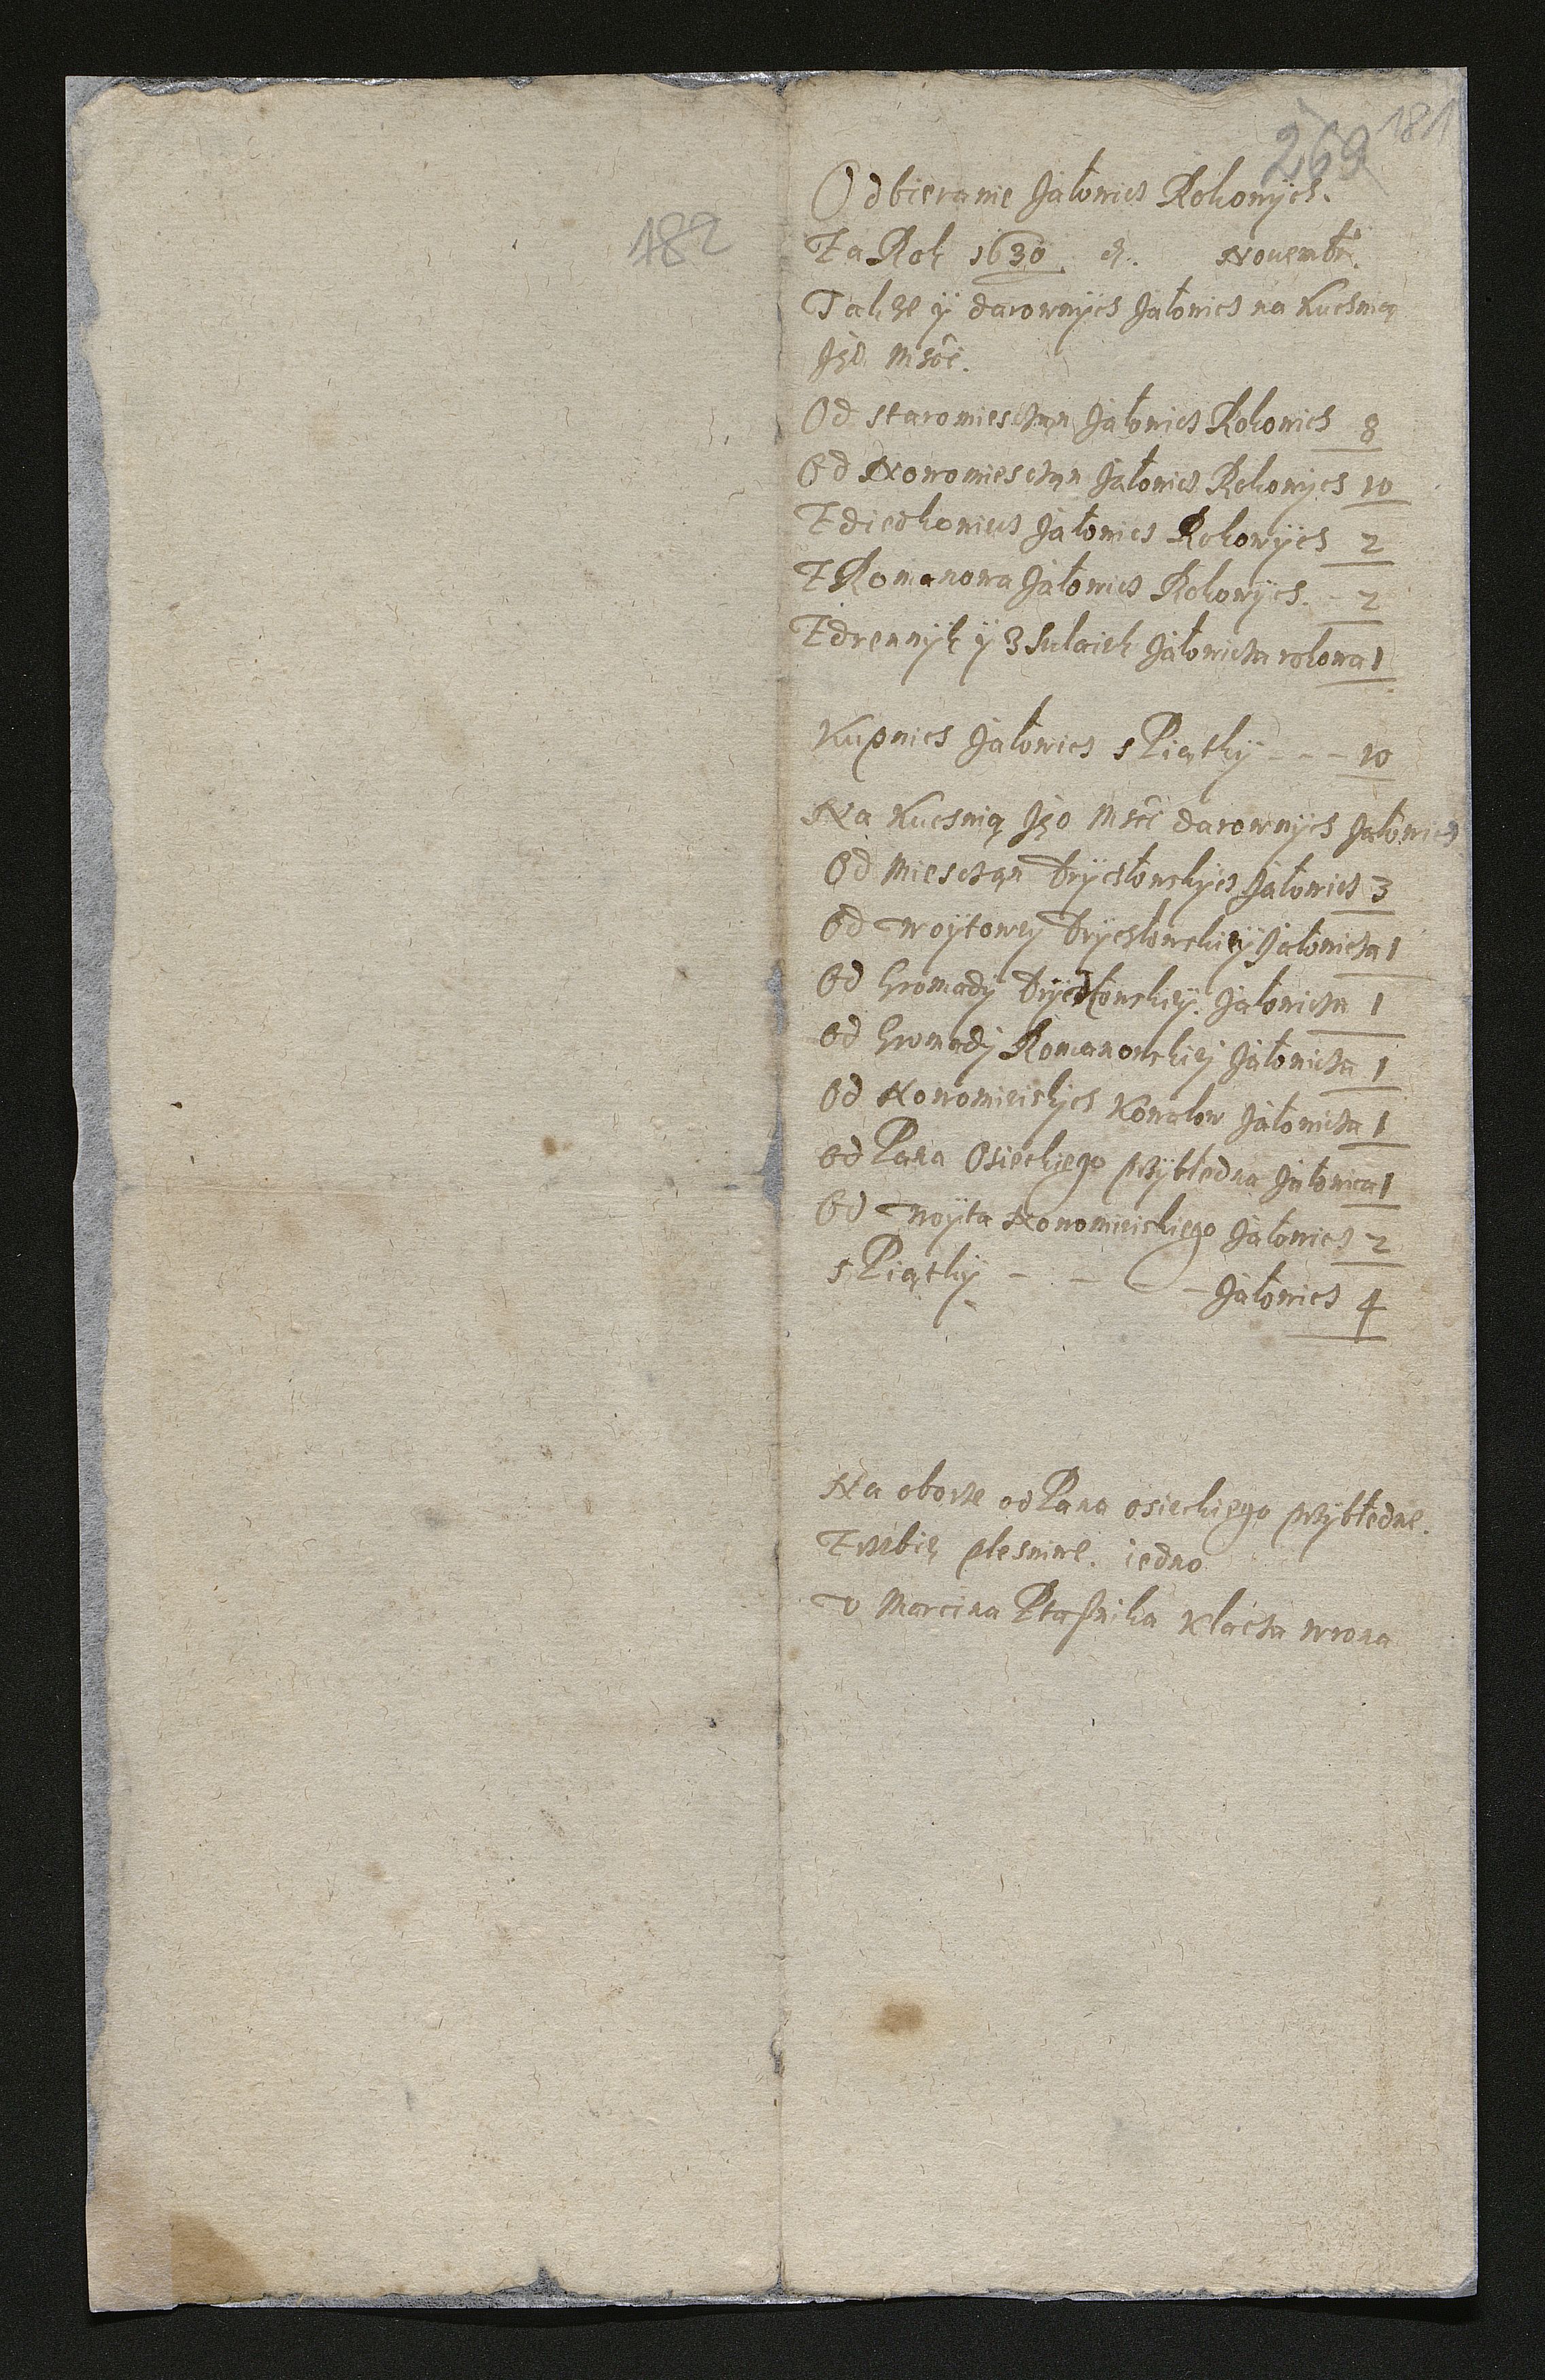 181
269
182
Odbieranie Jałowic Rokowÿch.
Za Rok 1630 d. Nouembr.
Takze ÿ darownÿch Jałowic na Kuchnią
Jgo Mści.
Od staromiesczan Jałowicz Rokowich 8
Od Nowomiesczan Jałowicz Rokowych 10
Z diedkowicz Jałowicz Rokowÿch 2
Z Romanowa Jałowicz Rokowÿch. 2
Z drennÿk ÿ Jałowicza rokowa 1
Kupnich Jałowicz s Piątkÿ - - - 10
Na Kuchnią Jgo Mści darownÿch Jałowicz
Od Miesczan Jałowicz 3
Od Woÿtowey Jałowicza 1
Od Gromadÿ Jałowicza 1
Od Gromady Romanowskiey Jałowicza 1
Od Nowomieiskych Kowalow Jałowicza 1
Od Pana Osieckiego przÿbłedna Jałowica 1
Od Woÿta Nowomieiskiego Jałowicz 2
s Piątkÿ - - - - Jałowicz 4
Na oborze od Pana Osieckiego przÿbłedne.
Zrzebię plesniwe. iedno
V Marcina Ptasznika Klacza wrona